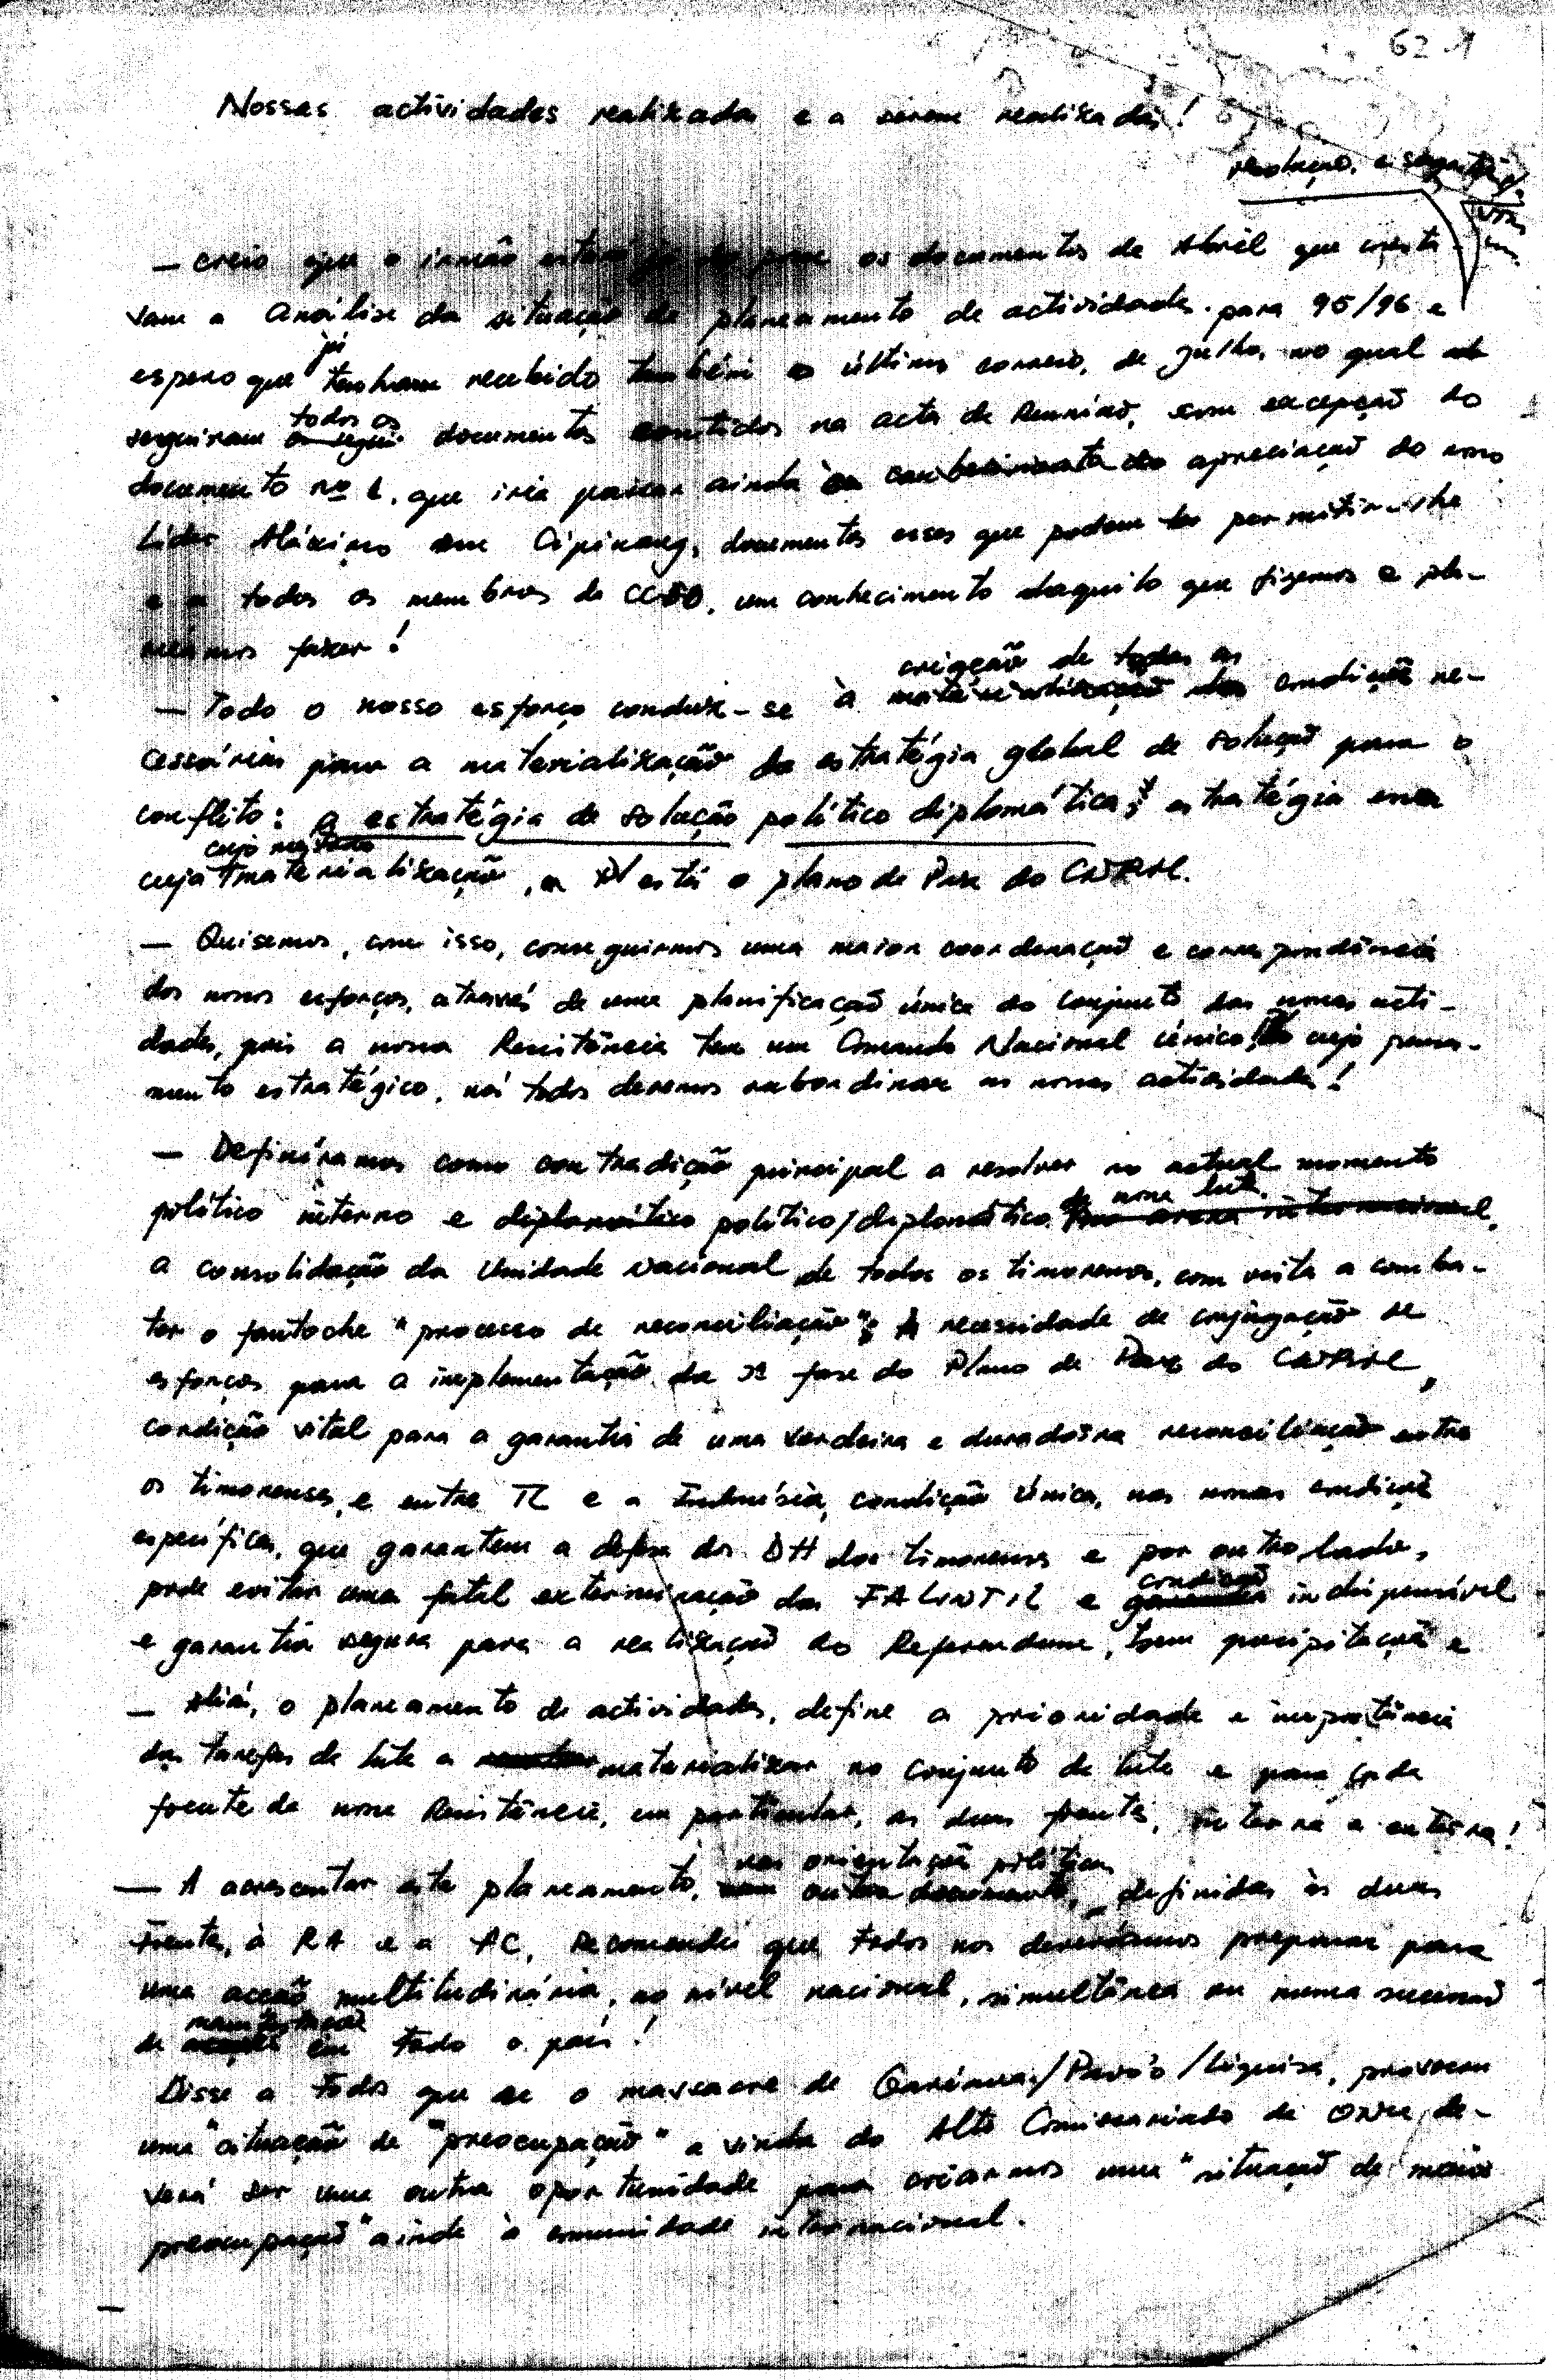 62 1
Nossas actividades realizadas e a serem realizadas!
resolução. e
— Creio que o irmão os documentos de Abril que consta-
vam a Análise da situação de planeamento de actividades para 95/96 e
espero que já tenham recebido também o último correio, de Julho, no qual
seguiram todos os documentos contidos na acta de Reunião, com excepção do
documento nº 1, que iria passar ainda à apreciação do nosso
Líder Máximo em Cipinang, documentos esses que podem ter permitir-lhe
e a todos os membros do um conhecimento daquilo que fizemos e pla-
neámos fazer!
— Todo o nosso esforço conduz-se à criação de todas as condições ne-
cessárias para a materialização da estratégia global de solução para o
conflito: a estratégia de solução político diplomática; estratégia essa
cuja materialização, está o plano de Paz do CNRM.
— Quisemos, com isso, conseguirmos uma maior coordenação e correspondência
dos nossos esforços, através de uma planificação única do conjunto das nossas acti-
dades, pois a nossa Resistência tem um Comando Nacional único, cujo pensa-
mento estratégico, nós todos devemos subordinar as nossas actividades!
— Definíramos como contradição principal a resolver no actual momento
político interno e diplomático político/diplomático da nossa luta.
a consolidação da Unidade Nacional de todos os timorenses, com vista a comba-
ter o fantoche "processo de reconciliação"; A necessidade de conjugação de
esforços para a implementação da fase do Plano de Paz do CNRM,
condição vital para a garantia de uma verdeira e duradoira reconciliação entre
os timorenses, e entre TL e a Indonésia, condição única, nas nossas condições
específicas, que garantem a defesa dos DH dos timorenses e por outro lado,
pode evitar uma fatal exterminação das FALINTIL e condição indispensável
e garantia segura para a realização do Referendum, sem precipitação e
— Aliás, o planeamento de actividades, define a prioridade e importância
das tarefas de luta a materializar no conjunto de luta e para cada
frente da nossa Resistência, em particular, as duas frentes, interna e externa!
— A apresentar este planeamento, nas orientações políticas definidas às duas
frentes, à RA e a AC, recomendei que todos nos deveríamos preparar para
uma acção multitudinária, ao nível nacional, simultânea ou numa sucessão
de manifestações em todo o país!
Disse a todos que se o massacre de Gariana/Pavó/Liquisa, provocou
uma "situação de "preocupação" a vinda do Alto Comissariado da ONU, de-
verá ser uma outra oportunidade para criarmos uma "situação de maior
preocupação" ainda à comunidade internacional.